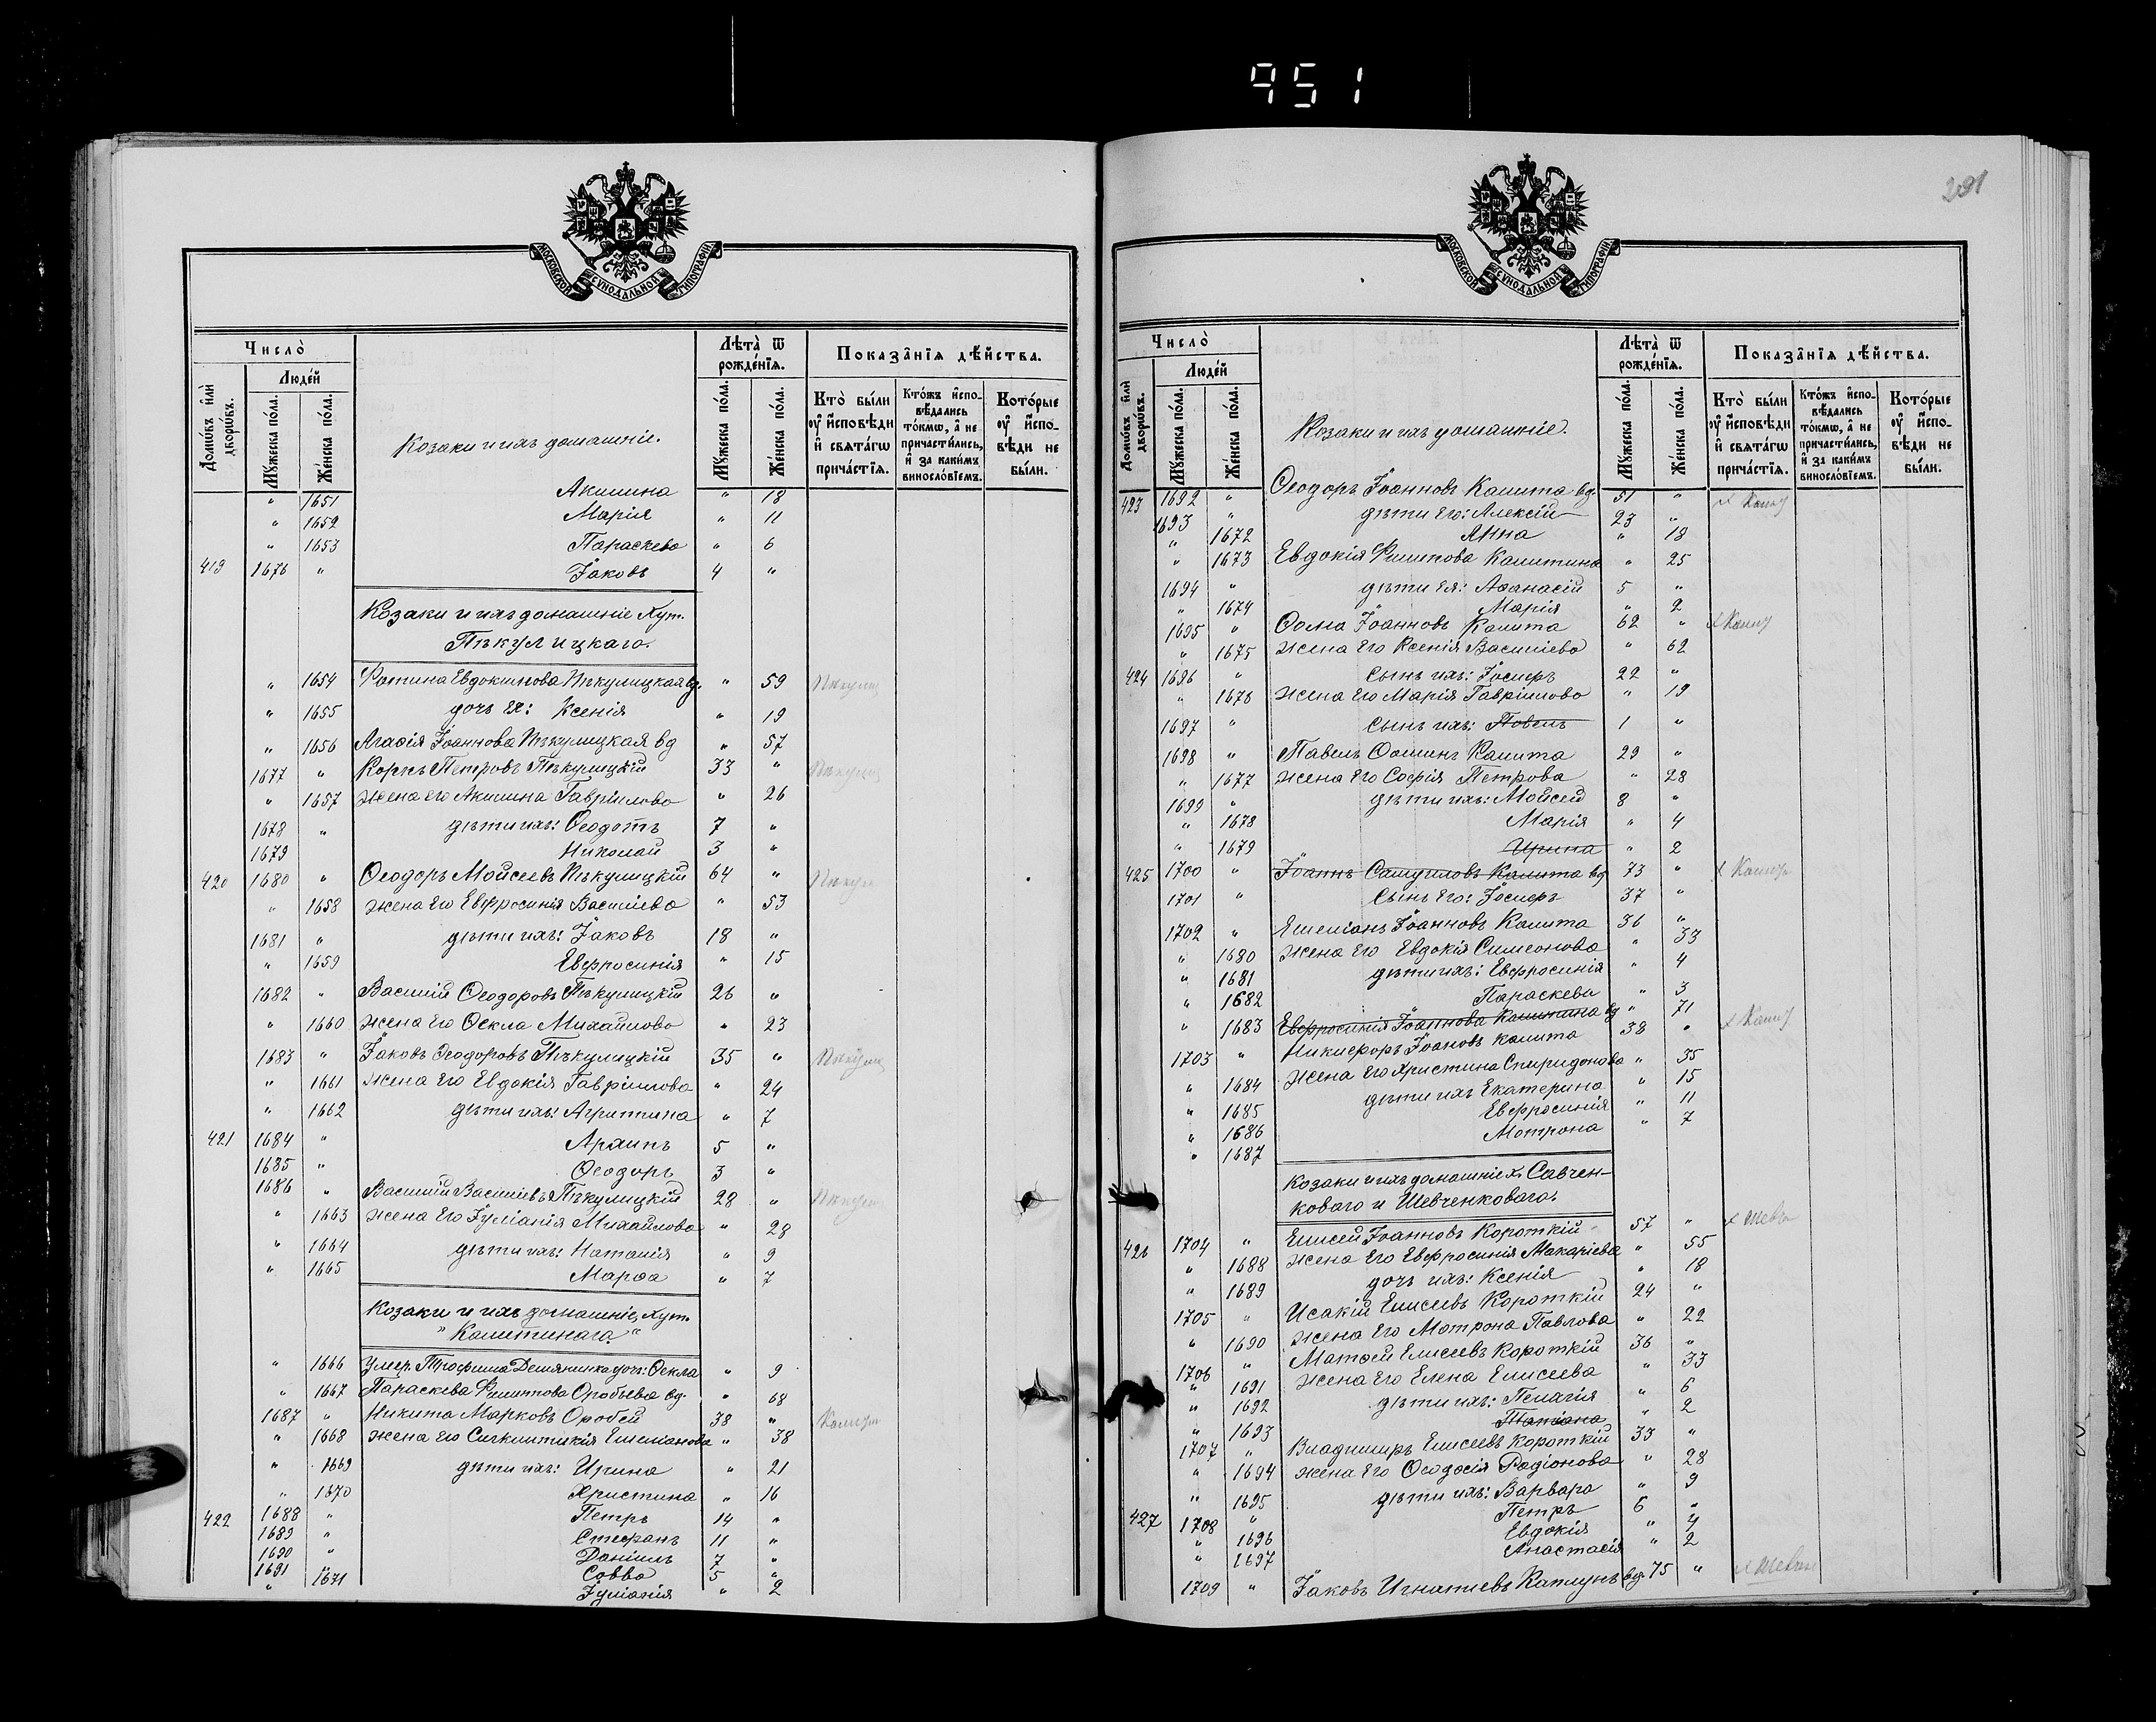 951
МОСКОВСКОЙ СѴНОДАЛЬНОЙ ТИПОГРАФІИ
Число̀
Люде́й
Домѡ́въ и҆лѝ дворѡ́въ.
Мꙋ́жеска по́ла.
Же́нска по́ла.
Козаки и ихъ домашніе.
Лѣта̀ ѿ рожде́нїѧ.
Мꙋ́жеска по́ла.
Же́нска по́ла.
Показа̑нїѧ дѣ́йства.
Кто̀ бы́ли ᲂу҆ и҆́сповѣди и҆ свѧта́гѡ прича́стїѧ.
Кто́жъ и҆спо- вѣ́дались то́кмѡ, а҆ не причасти́лись, и҆ за каки́мъ виносло́вїемъ.
Кото́рые ᲂу҆ и҆спо- вѣди не бы́ли.
" 1651 Акилина " 18
" 1652 Марія " 11
" 1653 Параскева " 6
419 1676 " Іаковъ 4 "
Козаки и ихъ домашніе Хут.
Пѣкулицкаго.
" 1654 Фотина Евдокимова Пѣкулицкая вд. " 59
" 1655 дочь ея: Ксенія " 19
" 1656 Агафія Іоаннова Пѣкулицкая вд " 57
1677 " Корнъ Петровъ Пѣкулицкій 33 "
" 1657 жена его Акилина Гавріилова " 26
1678 " дѣти ихъ: Ѳеодотъ 7 "
1679 Николай 3 "
420 1680 " Ѳеодоръ Мойсеевъ Пѣкулицкій 64 "
" 1658 жена его Евфросинія Василіева " 53
1681 " дѣти ихъ: Іаковъ 18 "
" 1659 Евфросинія " 15
1682 " Василій Ѳеодоровъ Пѣкулицкій 26 "
" 1660 жена его Ѳекла Михайлова " 23
1683 " Іаковъ Ѳеодоровъ Пѣкулицкій 35 "
" 1661 жена его Евдокія Гавріилова " 24
" 1662 дѣти ихъ: Агриппина " 7
421 1684 " Архипъ 5 "
1685 " Ѳеодоръ 3 "
1686 " Василій Василіевъ Пѣкулицкій 28 "
" 1663 жена его Іуліанія Михайлова " 28
" 1664 дѣти ихъ: Наталія " 9
" 1665 Марѳа " 7
Козаки и ихъ домашніе, хут.
"Калитинаго."
" 1666 умер. Трофима Демянинка дочь: Ѳекла " 9
" 1667 Параскева Филиппова Оробьева вд. " 68
1687 " Никита Марковъ Оробей 38 "
" 1668 жена его Сигклитикія Емеліанова " 38
" 1669 дѣти ихъ: Ирина " 21
" 1670 Христина " 16
422 1688 " Петръ 14 "
1689 " Стефанъ 11 "
1690 " Даніилъ 7 "
1691 " Савва 5 "
" 1671 Іуліанія " 2
291
МОСКОВСКОЙ СѴНОДАЛЬНОЙ ТИПОГРАФІИ
Число̀
Люде́й
Домѡ́въ и҆лѝ дворѡ́въ.
Мꙋ́жеска по́ла.
Же́нска по́ла.
Козаки и ихъ домашніе.
Лѣта̀ ѿ рожде́нїѧ.
Мꙋ́жеска по́ла.
Же́нска по́ла.
Показа̑нїѧ дѣ́йства.
Кто̀ бы́ли ᲂу҆ и҆́сповѣди и҆ свѧта́гѡ прича́стїѧ.
Кто́жъ и҆спо- вѣ́дались то́кмѡ, а҆ не причасти́лись, и҆ за каки́мъ виносло́вїемъ.
Кото́рые ᲂу҆ и҆спо- вѣди не бы́ли.
423 1692 " Ѳеодоръ Іоанновъ Калита вд. 51 "
1693 " дѣти его: Алексій 23 "
" 1672 Анна " 18
" 1673 Евдокія Филиппова Калитина " 25
1694 " дѣти ея: Аѳанасій 5 "
" 1674 Марія " 2
1695 " Ѳома Іоанновъ Калита 62 "
" 1675 жена его Ксенія Василіева " 62
424 1696 " сынъ ихъ: Іосифъ 22 "
" 1676 жена его Марія Гавріилова " 19
1697 " сынъ ихъ: Павелъ 1 "
1698 " Павелъ Ѳоминъ Калита 29 "
" 1677 жена его Софія Петрова " 28
1699 " дѣти ихъ: Мойсей 8 "
" 1678 Марія " 4
" 1679 Ирина " 2
425 1700 " Іоаннъ Самуиловъ Калита вд 73 "
1701 " сынъ его: Іосифъ 37 "
1702 " Емеліанъ Іоанновъ Калита 36 "
" 1680 жена его Евдокія Симеонова " 33
" 1681 дѣти ихъ: Евфросинія " 4
" 1682 Параскева " 3
" 1683 Евфросинія Іоаннова Калитина вд " 71
1703 " Никифоръ Іоановъ Калита 38 "
" 1684 жена его Христина Спиридонова " 35
" 1685 дѣти ихъ Екатерина " 15
" 1686 Евфросинія " 11
" 1687 Мотрона " 7
Козаки и ихъ домашніе х. Савчен-
коваго и Шевченковаго.
426 1704 " Елисей Іоанновъ Короткій 57 "
" 1688 жена его Евфросинія Макаріева " 55
" 1689 дочь ихъ: Ксенія " 18
1705 " Исакій Елисеевъ Короткій 24 "
" 1690 жена его Мотрона Павлова " 22
1706 " Матѳей Елисеевъ Короткій 36 "
" 1691 жена его Елена Елисеева " 33
" 1692 дѣти ихъ: Пелагія " 6
" 1693 Татіана " 2
1707 " Владимиръ Елисеевъ Короткій 33 "
" 1694 жена его Ѳеодосія Радіонова " 28
" 1695 дѣти ихъ: Варвара " 9
427 1708 " Петръ 6 "
" 1696 Евдокія " 4
" 1697 Анастасія " 2
1709 " Іаковъ Игнатіевъ Каплунъ вд. 75 "